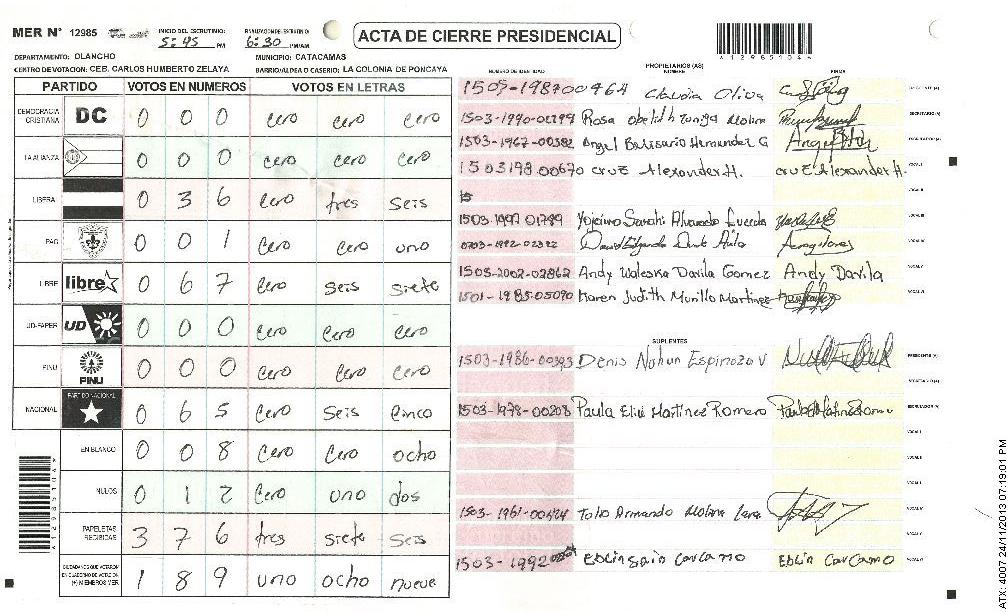 MER N° 12985
INICIO DEL ESCRUTINIO: 5:45 PM
FINALIZACION DEL ESCRUTINIO: 6:30 PM/AM
ACTA DE CIERRE PRESIDENCIAL
A129851044
DEPARTAMENTO: OLANCHO
MUNICIPIO: CATACAMAS
CENTRO DE VOTACION: CEB. CARLOS HUMBERTO ZELAYA
BARRIO/ALDEA O CASERIO: LA COLONIA DE PONCAYA
PARTIDO VOTOS EN NUMEROS VOTOS EN LETRAS
DEMOCRACIA CRISTIANA DC 0 0 0 cero cero cero
LA ALIANZA 0 0 0 cero cero cero
LIBERAL 0 3 6 cero tres seis
PAC 0 0 1 cero cero uno
LIBRE libre 0 6 7 cero seis siete
UD-FAPER UD 0 0 0 cero cero cero
PINU PINU 0 0 0 cero cero cero
NACIONAL PARTIDO NACIONAL 0 6 5 cero seis cinco
EN BLANCO 0 0 8 cero cero ocho
NULOS 0 1 2 cero uno dos
PAPELETAS RECIBIDAS 3 7 6 tres siete seis
CIUDADANOS QUE VOTARON EN CUADERNO DE VOTACION (+) MIEMBROS MER 1 8 9 uno ocho nueve
PROPIETARIOS (AS)
NUMERO DE IDENTIDAD NOMBRE FIRMA
1509-198700464 Claudia Oliva PRESIDENTE (A)
1503-1990-01799 Rosa Molina SECRETARIO (A)
1503-1967-00382 Angel Belisario Hernandez G ESCRUTADOR (A)
1503198.00670 cruz Alexander H. cruz Alexander H. VOCAL I
VOCAL II
1503-1997-01789 Sarahi Alvarado VOCAL III
0703-1992-02322 VOCAL IV
1503-2002-02862 Andy Waleska Davila Gomez Andy Davila VOCAL V
1501-1985-05090 Karen Judith Murillo Martinez VOCAL VI
SUPLENTES
1503-1986-00393 Denis Nahun Espinoza V PRESIDENTE (A)
SECRETARIO (A)
1503-1978-00208 Paula Elia Martinez Romero ESCRUTADOR (A)
VOCAL I
VOCAL II
VOCAL III
1503-1961-00524 Tulio Armando Molina VOCAL IV
VOCAL V
1503-1992 Carcamo Carcamo VOCAL VI
ATX: 4007 24/11/2013 07:19:01 PM